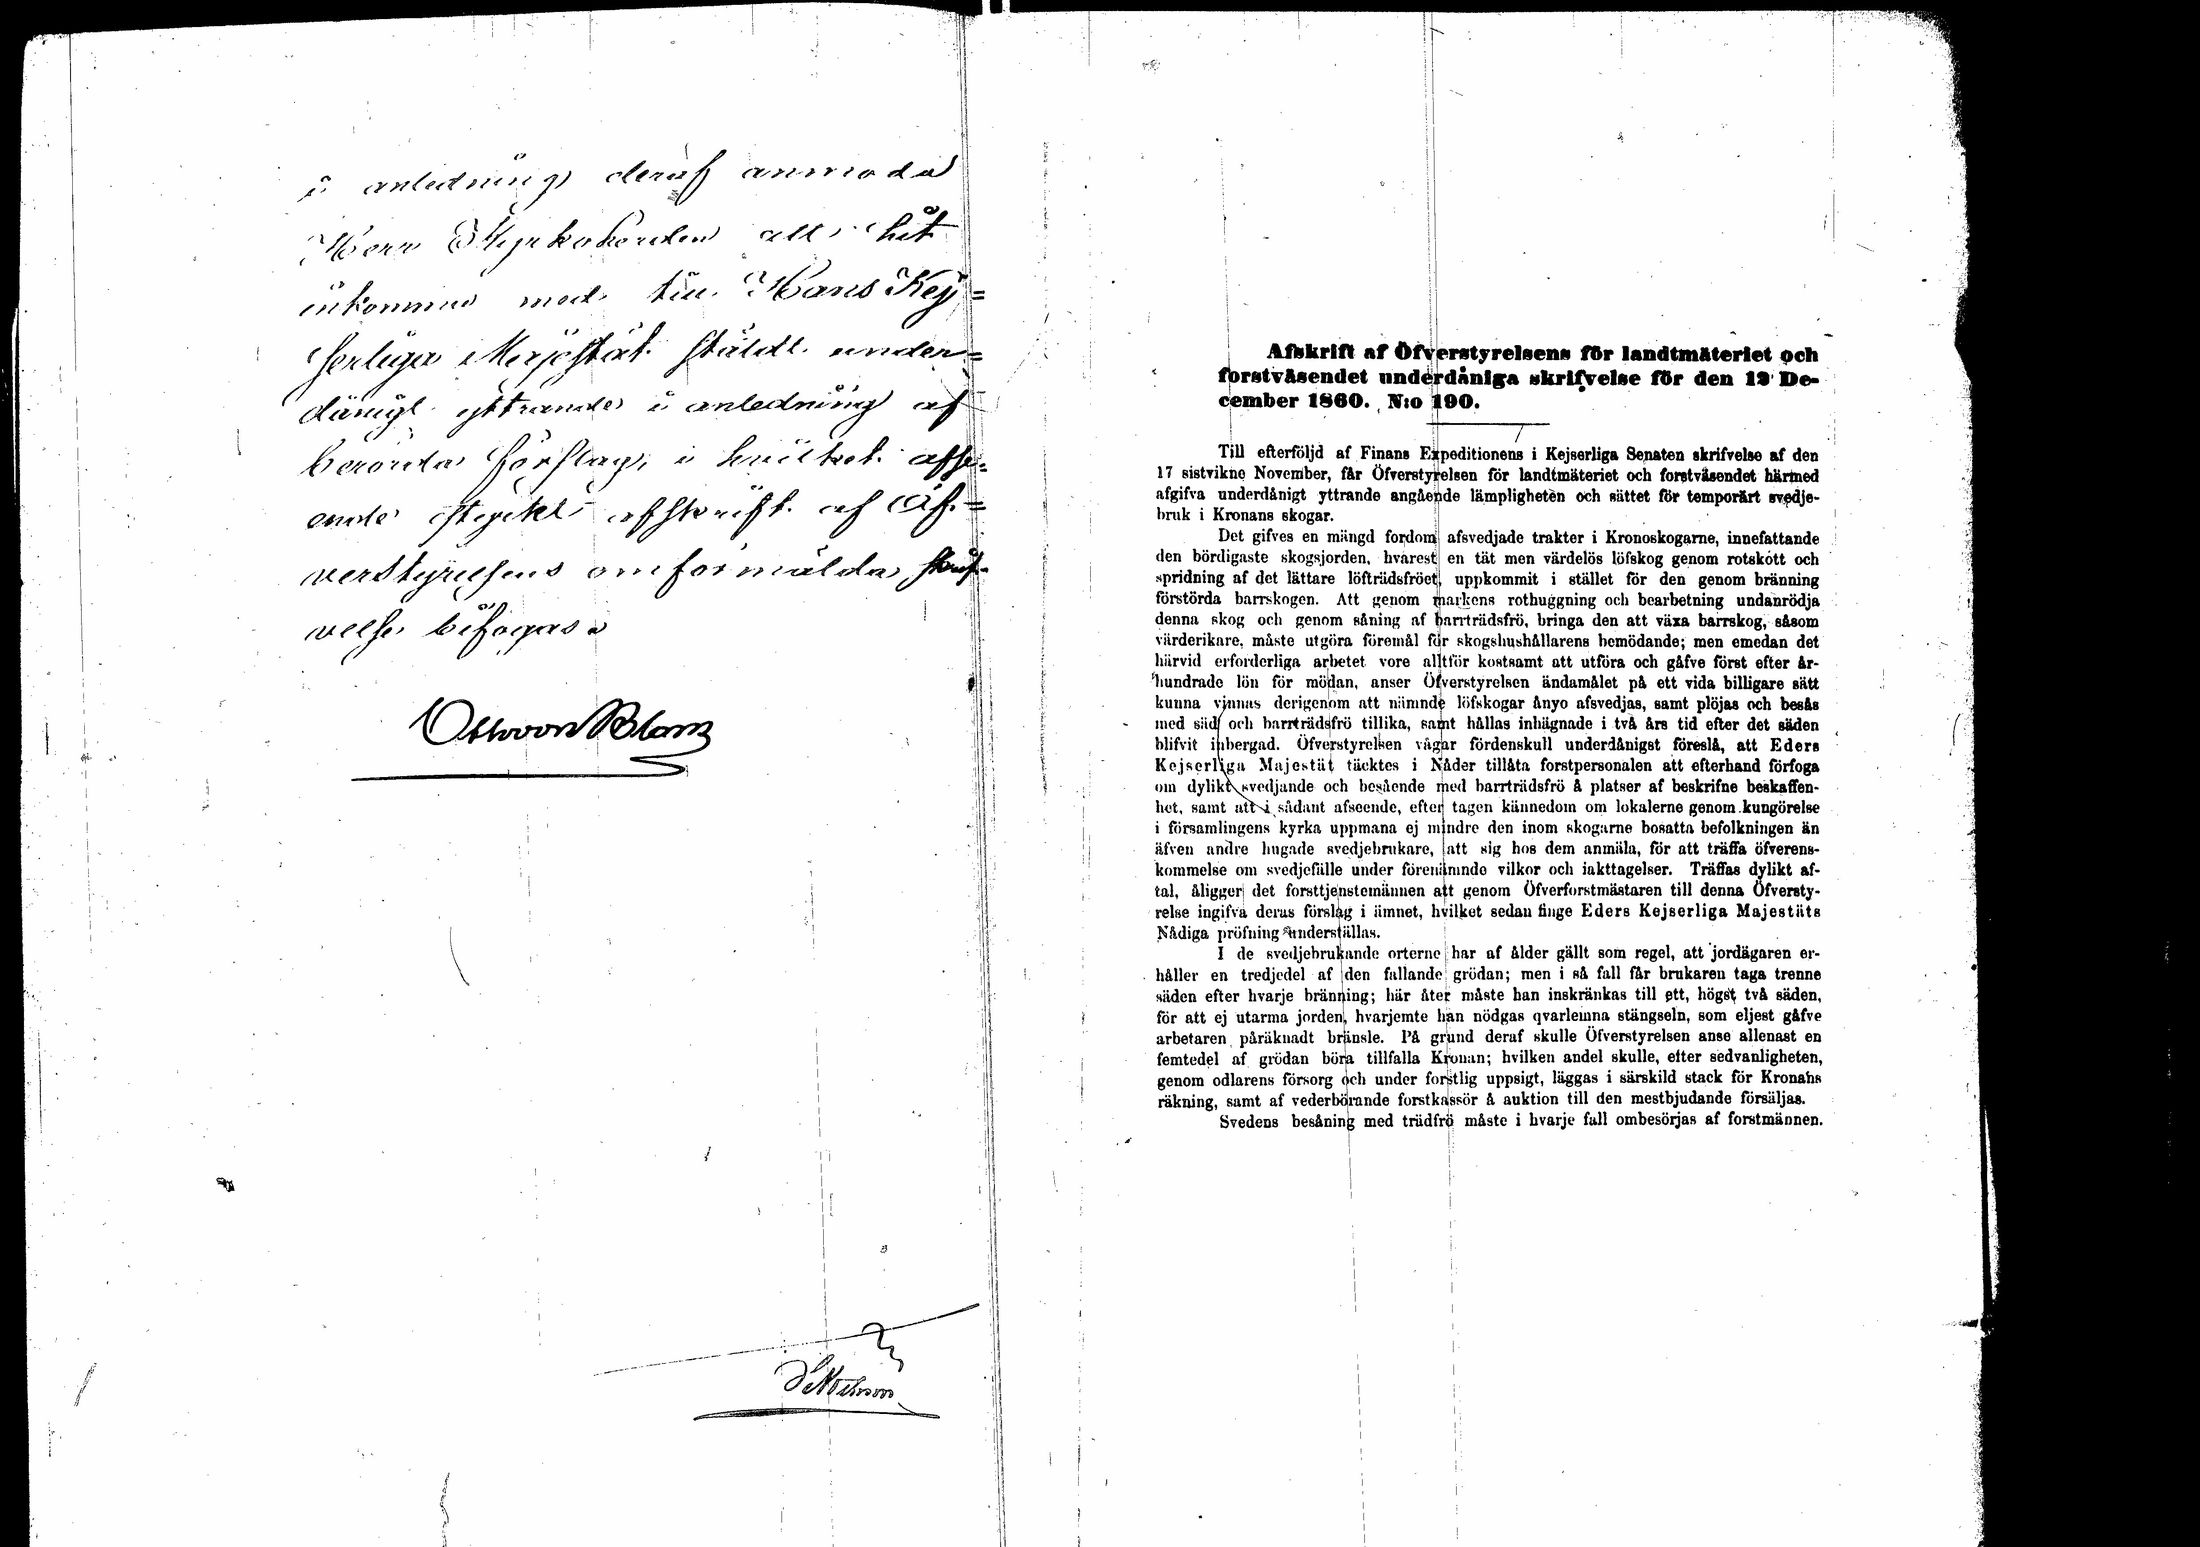 i anledning deraf anmoda
Herr Kyrkoherden att hit
inkomma med till Hans Kej=
serliga Majestät stäldt under=
dånigt yttrande i anledning af
berörda förslag, i hvilket afse=
ende tryckt afskrift af Öf=
verstyrelsens omförmälda skrif=
velse bifogas.
Otto von Blom
Afskrift af Öfverstyrelsens för landtmäteriet och
forstväsendet underdåniga skrifvelse för den 12 De-
cember 1860. N:o 190.
Till efterföljd af Finans Expeditionens i Kejserliga Senaten skrifvelse af den
17 sistvikne November, får Öfverstyrelsen för landtmäteriet och forstväsendet härmed
afgifva underdånigt yttrande angående lämpligheten och sättet för temporärt svedje-
bruk i Kronans skogar.
Det gifves en mängd fordom afsvedjade trakter i Kronoskogarne, innefattande
den bördigaste skogsjorden, hvarest en tät men värdelös löfskog genom rotskott och
spridning af det lättare löfträdsfröet, uppkommit i stället för den genom bränning
förstörda barrskogen. Att genom markens rothuggning och bearbetning undanrödja
denna skog och genom såning af barrträdsfrö, bringa den att växa barrskog, såsom
värderikare, måste utgöra föremål för skogshushållarens bemödande; men emedan det
härvid erforderliga arbetet vore alltför kostsamt att utföra och gåfve först efter år-
hundrade lön för mödan, anser Öfverstyrelsen ändamålet på ett vida billigare sätt
kunna vinnas derigenom att nämnde löfskogar ånyo afsvedjas, samt plöjas och besås
med säd och barrträdsfrö tillika, samt hållas inhägnade i två års tid efter det säden
blifvit inbergad. Öfverstyrelsen vågar fördenskull underdånigst föreslå, att Eders
Kejserliga Majestät täcktes i Nåder tillåta forstpersonalen att efterhand förfoga
om dylikt svedjande och besående med barrträdsfrö å platser af beskrifne beskaffen-
het, samt att i sådant afseende, efter tagen kännedom om lokalerne genom kungörelse
i församlingens kyrka uppmana ej mindre den inom skogarne bosatta befolkningen än
äfven andre hugade svedjebrukare, att sig hos dem anmäla, för att träffa öfverens-
kommelse om svedjefälle under förenämnde vilkor och iakttagelser. Träffas dylikt af-
tal, åligger det forsttjenstemännen att genom Öfverforstmästaren till denna Öfversty-
relse ingifva deras förslag i ämnet, hvilket sedan finge Eders Kejserliga Majestäts
Nådiga pröfning underställas.
I de svedjebrukande orterne har af ålder gällt som regel, att jordägaren er-
håller en tredjedel af den fallande grödan; men i så fall får brukaren taga trenne
säden efter hvarje bränning; här åter måste han inskränkas till ett, högst två säden,
för att ej utarma jorden, hvarjemte han nödgas qvarlemna stängseln, som eljest gåfve
arbetaren påräknadt bränsle. På grund deraf skulle Öfverstyrelsen anse allenast en
femtedel af grödan böra tillfalla Kronan; hvilken andel skulle, efter sedvanligheten,
genom odlarens försorg och under forstlig uppsigt, läggas i särskild stack för Kronans
räkning, samt af vederbörande forstkassör å auktion till den mestbjudande försäljas.
Svedens besåning med trädfrö måste i hvarje fall ombesörjas af forstmännen.